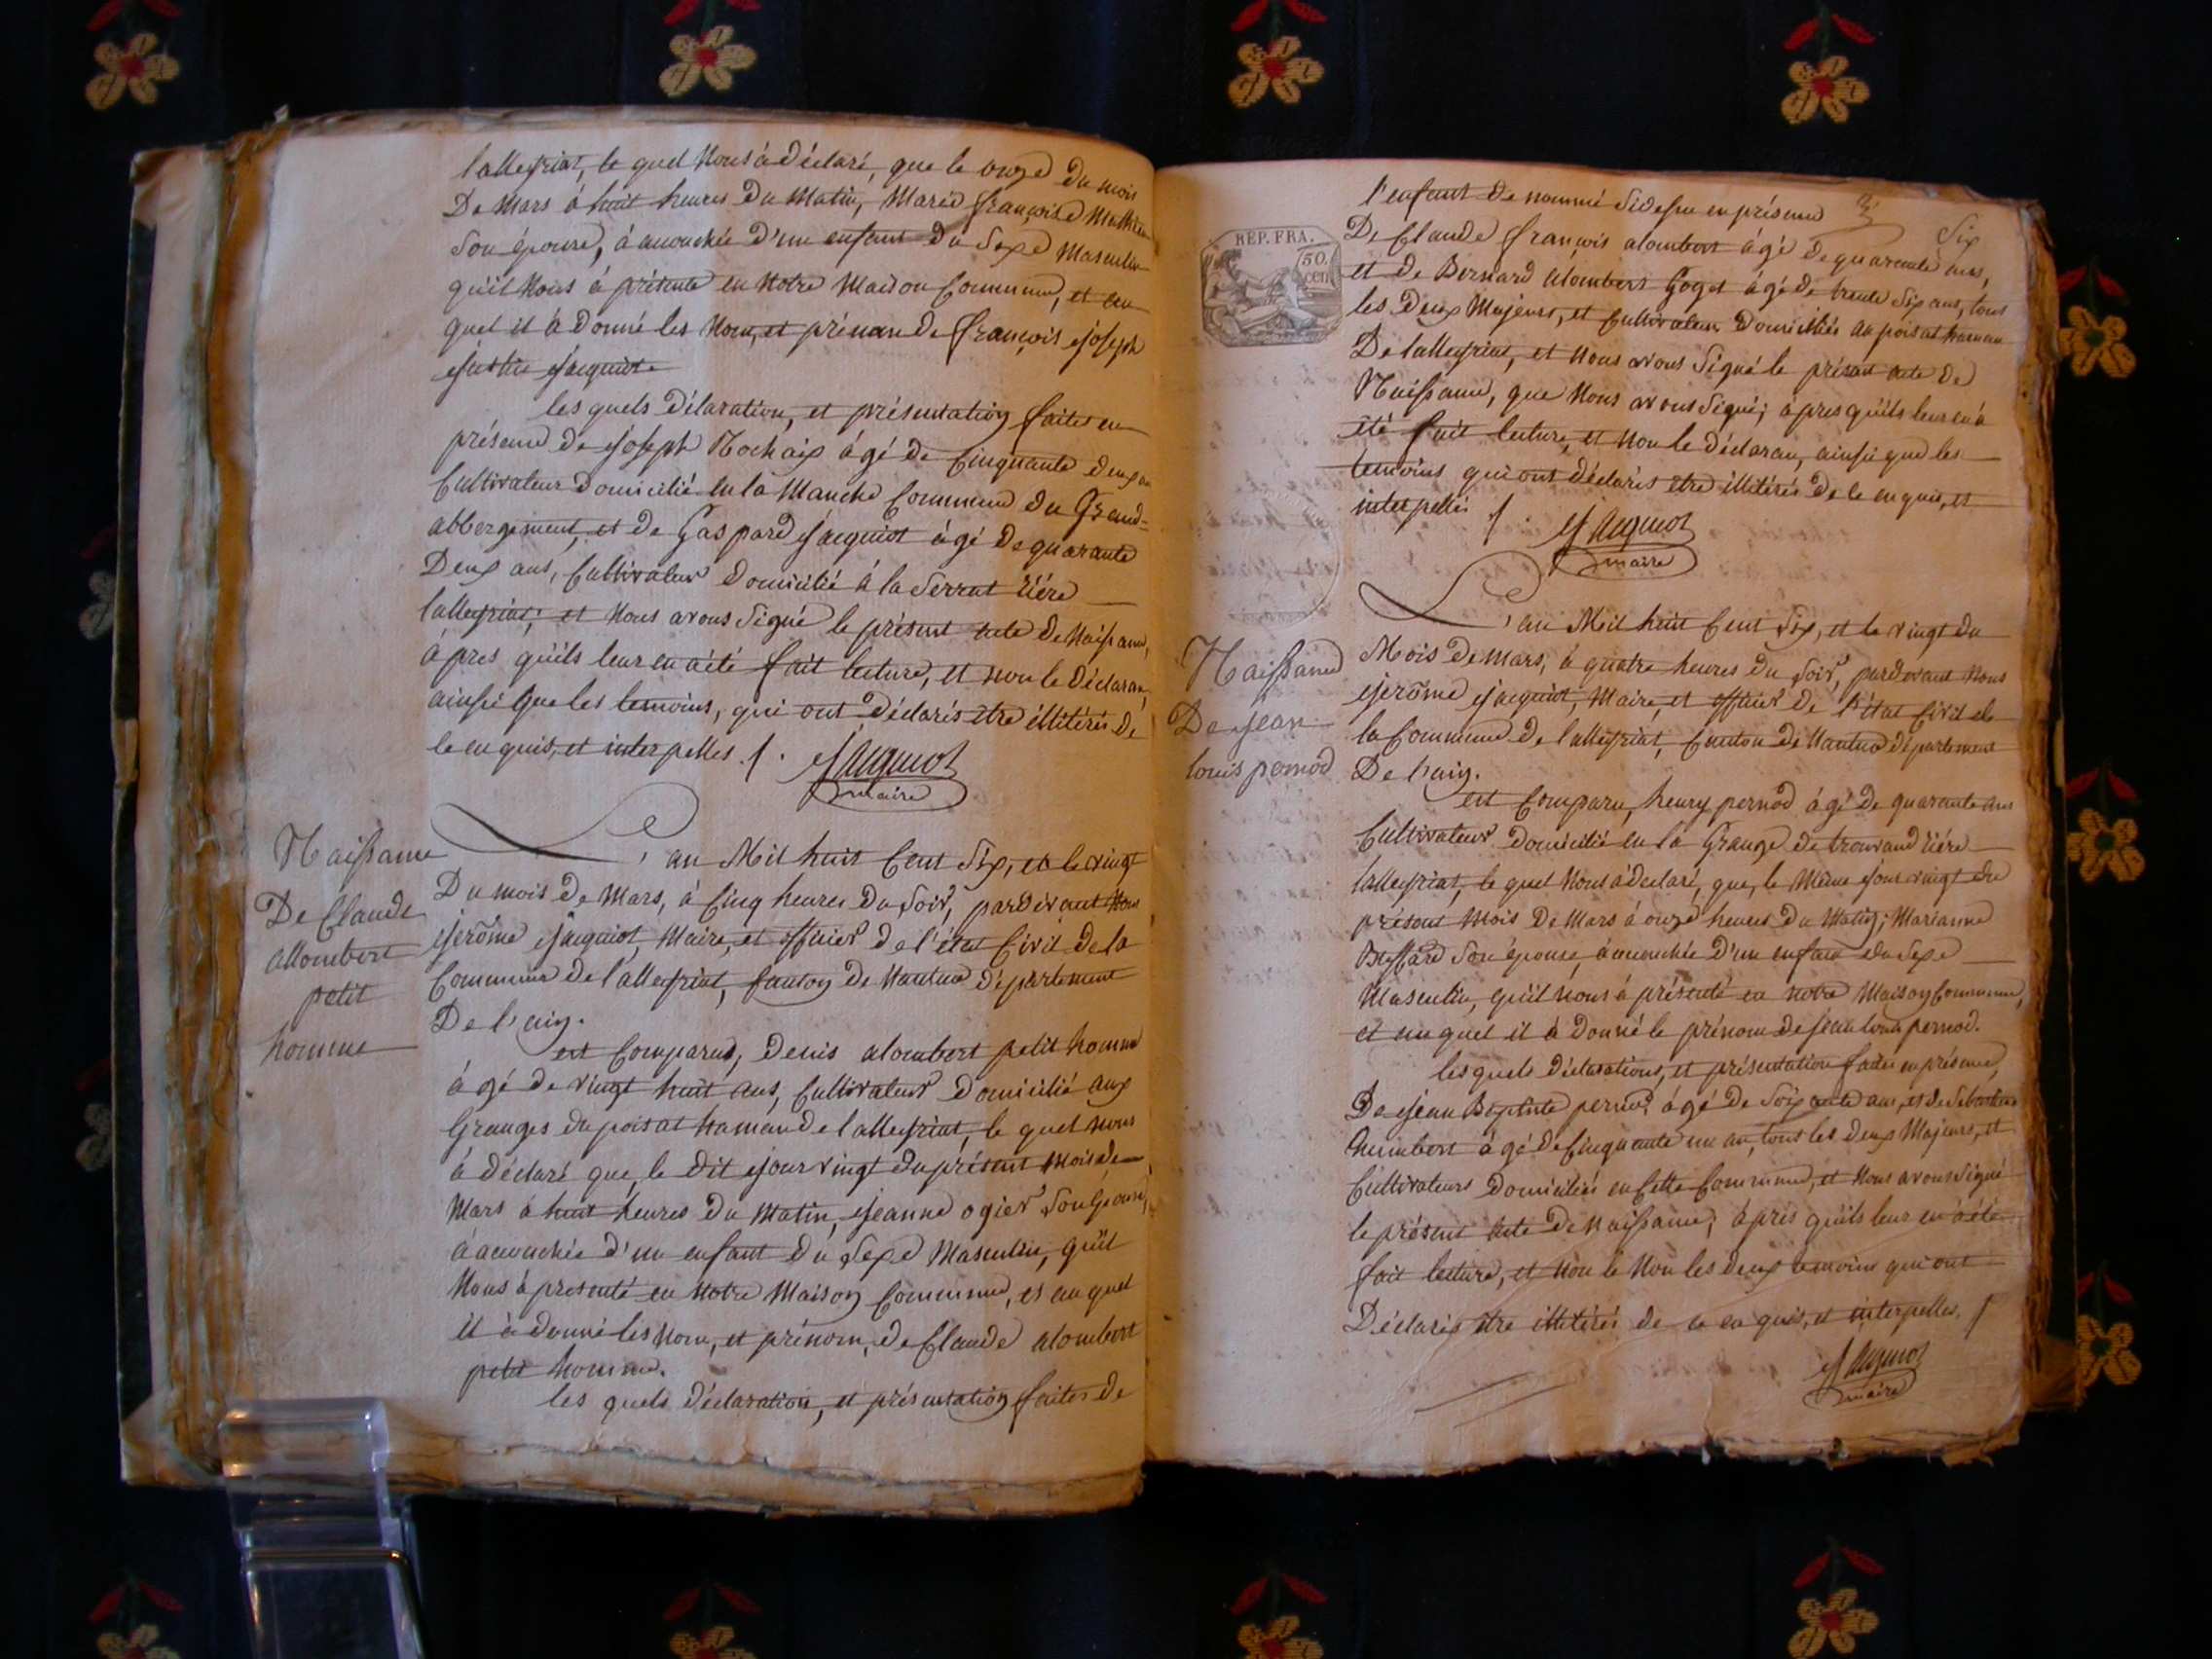 lalleyriat, le quel Nous à déclaré, que le onze du mois
De Mars à huit heures du Matin, Marie françoise Mathieu
Son épouse, à accouchée d'un enfant du Sexe Masculin
qu'il Nous à présenté en Notre Maison Commune, et au
quel il à donné les Nom, et prénom de françois joseph
justin jacquiot.
les quels Déclaration, et présentation faites en
présence de joseph Rochaix âgé de Cinquante deux ans
Cultivateur Domicilié en la Manche Commune du Grand=
abbergement, et de Gaspard jacquiot âgé de quarante
Deux ans, Cultivateur Domicilié à la Serrat riére
lalleyriat; et Nous avons Signé le présent acte de Naissance,
à pres qu'ils leur en à été fait lecture, et non le Déclarant,
ainsi que les temoins, qui ont Déclarés être illitérés de
le en quis, et interpelles./.
jacquiot
maire
Naissance
De Claude
allombert
petit
homme
L'an Mil huit Cent Six, et le vingt
Du mois de Mars, à Cinq heures du Soir, pardevant Nous
jerôme jacquiot, Maire, et officier de l'état Civil de la
Commune de lalleyriat, Canton de Nantua département
De l'ain.
est Comparus, denis alombert petit homme
âgé de vingt huit ans, Cultivateur Domicilié aux
Granges du poisat hamau de lalleyriat, le quel nous
à déclaré que, le dit jour vingt du présent Mois de
Mars à huit heures du Matin, jeanne ogier Son épouse,
à accouchée d'un enfant du Sexe Masculin, qu'il
Nous à presenté en Notre Maison Commune, et au quel
il à donné les Nom, et prénom, de Claude alombert
petit homme.
les quels Déclaration, et présentation faites de
l'enfant de nommé Sidessus en présence
Six
REP. FRA.
50.
cen
De Claude françois alombert âgé de quarante ans,
et de Bernard alombert Goget âgé de trente Six ans, tous
les deux Majeurs, et Cultivateurs Domiciliés au poisat hamau
De lalleyriat, et Nous avons Signé le présent acte de
Naissance, que Nous avons Signé; à pres qu'ils leur en à
été fait lecture, et Non le déclarant, ainsi que les
temoins qui ont déclarés être illitérés de le en quis, et
interpellés /.
jacquiot
maire
Naissance
De jean
louis pernod
L'an Mil huit Cent Six, et le vingt du
Mois de mars, à quatre heures du Soir, pardevant Nous
jerôme jacquiot, Maire, et officier de l'état Civil de
la Commune de lalleyriat, Canton de Nantua département
De l'ain.
est Comparu, henry pernod âgé de quarante ans
Cultivateur Domicilié en la Grange de trouvand riére
lalleyriat, le quel Nous à declaré, que, le Même jour vingt du
présent Mois de Mars à onze heures du Matin; Marianne
Buffard Son épouse, à accouchée d'un enfant du Sexe
Masculin, qu'il nous à présenté en notre Maison Commune,
et au quel il à donné le prénom de jean louis pernod.
les quels Déclarations, et présentation faites en présence,
De jean Baptiste pernod âgé de Soixante ans, et de Sébastien
humbert âgé de Cinquante un an, tous les deux Majeurs, et
Cultivateurs Domiciliés en Cette Commune, et Nous avons Signé
le présent acte de Naissance, à près qu'ils leur en à été
fait lecture, et Non le Non les deux temoins qui ont
Déclarés être illitérés de ce en quis, et interpelles. /
jacquiot
maire